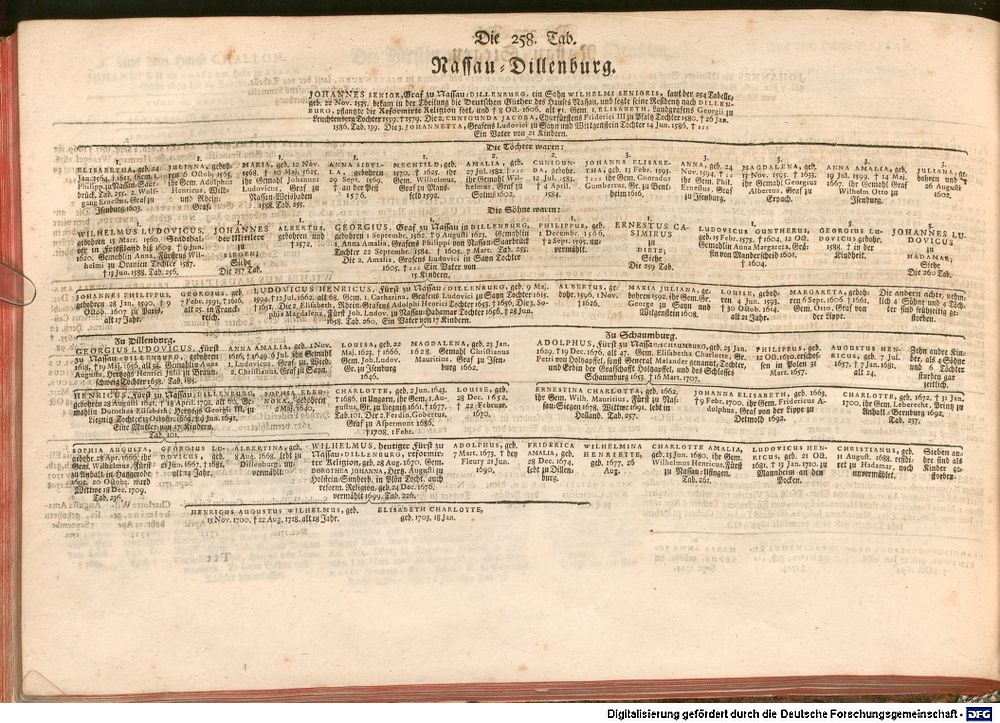 Die 258. Tab.
Nassau-Dillenburg.
JOHANNES SENIOR, Graf zu Nassau-DILLENBURG, ein Sohn WILHELMI SENIORIS, laut der 254 Tabelle,
geb. 22 Nov. 1535. bekam in der Theilung die Deutschen Güther des Hauses Nassau, und legte seine Residenz nach DILLEN-
BURG, pflantzte die Reformirte Religion fort, und † 8 Oct. 1606, alt 71. Gem. 1. ELISABETH, Landgrafens Georgii zu
Leuchtenberg Tochter 1559. † 1579. Die 2. CUNIGUNDA JACOBA, Churfürstens Friderici III zu Pfaltz Tochter 1580. † 26 Jan.
1586. Tab. 139. Die 3. JOHANNETTA, Grafens Ludovici zu Sayn und Wittgenstein Tochter 14 Jun. 1586. † :::
Ein Vater von 21 Kindern.
Die Töchter waren:
1. ELISABETHA, geb. Jan. 1564. † 1611. Gem. Philipp. zu Nassau-Saar-brück. Tab. 255. 2. Wolfgang Ernestus, Graf zu Isenburg 1603.
1. JULIANA, geboh-ren 6 Octob. 1565. ihr Gem. Adolphus Henricus, Wild- und Rhein-Graf.
1. MARIA, geb. 12 Nov. 1568. † 10 Maj. 1625. ihr Gemahl Johannes Ludovicus, Graf zu Nassau-Wisbaden 1588. Tab. 255.
1. ANNA SIBYL-LA, geboren 29 Sept. 1569. † an der Pest 1576.
1. MECHTILD, geb. 1570. † 1625. ihr Gem. Wilhelmus, Graf zu Mans-feld 1592.
2. AMALIA, geb. 27 Jul. 1582. † ::: ihr Gemahl Wil-helmus, Graf zu Solms 1602.
2. CUNIGUN-DA, geboren 12 Jul. 1583. † 4 April. 1584.
3. JOHANNA ELISABE-THA, geb. 13 Febr. 1593. † ::: ihr Gem. Conradus Gumbertus, Gr. zu Bent-heim 1616.
3. ANNA, geb. 24 Nov. 1594. † ::: ihr Gem. Phil. Ernestus, Graf zu Isenburg.
3. MAGDALENA, geb. 13 Nov. 1595. † 1633. ihr Gemahl Georgius Albertus, Graf zu Erpach.
3. ANNA AMALIA, geb. 19 Jul. 1599. † 14 Maj. 1667. ihr Gemahl Graf Wilhelm Otto zu Isenburg.
3. JULIANA, ge-bohren und † 26 Augusti 1602.
Die Söhne waren:
1. WILHELMUS LUDOVICUS, gebohren 15 Mart. 1560. Stadthal-ter in Frießland † 31 May. 1620. Gemahlin Anna, Fürstens Wil-helmi zu Oranien Tochter 1587. † 13 Jun. 1588. Tab. 256.
1. JOHANNES der Mittlere zu SIEGEN; Siehe Die 257 Tab.
1. ALBERTUS, gebohren und † 1572.
1. GEORGIUS, Graf zu Nassau in DILLENBURG, gebohren 1 Septembr. 1562. † 9 Augusti 1623. Gemahlin 1. Anna Amalia, Grafens Philippi von Nassau-Saarbrück Tochter 22 Septembr. 1584. † 1605. 9 Mart. Tab. 255. Die 2. Amalia, Grafens Ludovici in Sayn Tochter 1605. † ::: Ein Vater von 15 Kindern.
1. PHILIPPUS, geb. 1 Decembr. 1566. † 2 Sept. 1595. un-vermählt.
1. ERNESTUS CA-SIMIRUS zu DIETZ; Siehe Die 259 Tab.
1. LUDOVICUS GUNTHERUS, geb. 15 Febr. 1575. † 1604. 12 Oct. Gemahlin Anna Margareta, Grä-fin von Manderscheid 1601. † 1604.
2. GEORGIUS LU-DOVICUS gebohr. 1588. † in der Kindheit.
3. JOHANNES LU-DOVICUS zu HADAMAR; Siehe Die 260 Tab.
JOHANNES PHILIPPUS, gebohren 28 Jan. 1590. † 9 Octob. 1607 zu Paris, alt 17 Jahr.
GEORGIUS, geb. 7 Febr. 1591. † 1616, alt 25. in Franck-reich.
LUDOVICUS HENRICUS, Fürst zu Nassau-DILLENBURG, geb. 9 Maj. 1594. † 12 Jul. 1662. alt 68. Gem. 1. Catharina, Grafens Ludovici zu Sayn Tochter 1615. Die 2. Elisabeth, Rhein-Grafens Adolphi Henrici Tochter 1653. † 1656. Die 3. So-phia Magdalena, Fürst Joh. Ludov. zu Nassau-Hadamar Tochter 1656. † 28 Jun. 1658. Tab. 260. Ein Vater von 17 Kindern.
ALBERTUS, ge-bohr. 1596. † 1 Nov. 1626.
MARIA JULIANA, ge-bohren 1592. ihr Gem. Gr. George zu Sayn und Witgenstein 1608.
LOUISE, geboh-ren 4 Jun. 1593. † 30 Octob. 1614. alt 21 Jahr.
MARGARETA, geboh-ren 6 Sept. 1606 † 1661. Gem. Otto, Graf von der Lippe.
Die andern achte, nehm-lich 4 Söhne und 4 Töch-ter sind frühzeitig ge-storben.
Zu Dillenburg.
GEORGIUS LUDOVICUS, Fürst zu Nassau-DILLENBURG, gebohren 1618. † 19 Maj. 1656. alt 38. Gemahlin Anna Augusta, Hertzogs Henrici Julii zu Braun-schweig Tochter 1638. Tab. 188.
ANNA AMALIA, geb. 1 Nov. 1616. † 1649. 6 Jul. ihr Gemahl 1. Ludovicus, Graf zu Wied. 2. Christianus, Graf zu Sayn.
LOUISA, 22 Maj. 1623. † 1666. Gem. Joh. Ludov. Gr. zu Isenburg 1646.
MAGDALENA, geb. 23 Jan. 1628. Gemahl Christianus Mauritius, Graf zu Isen-burg 1662.
Zu Schaumburg.
ADOLPHUS, Fürst zu Nassau-SCHAUMBURG, geb. 23 Jan. 1629. † 19 Dec. 1676. alt 47. Gem. Elisabetha Charlotte, Gr. Petri von Holtzappel, sonst General Melander genannt, Tochter, und Erbin der Grafschaft Holtzappel, und des Schlosses Schaumburg 1653. † 16 Mart. 1707.
PHILIPPUS, geb. 12 Oct. 1630. erschos-sen in Polen 31 Mart. 1657.
AUGUSTUS HEN-RICUS, geb. 7 Jul. 1657. † 7 Jan. 1681. alt 24.
Zehn andre Kin-der, als 4 Söhne und 6 Töchter sturben gar zeitlich.
HENRICUS, Fürst zu Nassau-DILLENBURG, gebohren 28 Augusti 1641. † 18 April. 1701. alt 60. Ge-mahlin Dorothea Elisabeth, Hertzogs Georgii III. zu Liegnitz Tochter 13 Octobr. 1663. † 9 Jun. 1691. Eine Mutter von 17 Kindern. Tab. 101.
SOPHIA ELEO-NORA, gebohren 2 Maj. 1640.
CHARLOTTE, geb. 2 Jun. 1643. † 1686. in Ungarn, ihr Gem. 1. Au-gustus, Gr. zu Liegnitz 1661. † 1677. Tab. 101. Der 2. Ferdin. Gobertus, Graf zu Aspermont 1686, † 1708. 1 Febr.
LOUISE, geb. 28 Dec. 1652. † 22 Februar. 1670.
ERNESTINA CHARLOTTA, geb. 1662, ihr Gem. Wilh. Mauritius, Fürst zu Nas-sau-Siegen 1678. Wittwe 1691. lebt in Holland. Tab. 257.
JOHANNA ELISABETH, geb. 1663, † 9 Febr. 1700, ihr Gem. Fridericus A-dolphus, Graf von der Lippe zu Detmold 1692.
CHARLOTTE, geb. 1672. † 31 Jan. 1700, ihr Gem. Leberecht, Printz zu Anhalt-Bernburg 1692. Tab. 237.
SOPHIA AUGUSTA, gebohr. 28 April. 1666, ihr Gem. Wilhelmus, Fürst zu Anhalt in Hatzgerode 1695. 20 Octobr. ward Wittwe 18 Dec. 1709. Tab. 236.
GEORGIUS LU-DOVICUS, geb. 11 Jun. 1667. † 1681. alt 14 Jahr.
ALBERTINA, geb. 3 Aug. 1668. lebt zu Dillenburg, un-vermählt.
WILHELMUS, heutiger Fürst zu Nassau-DILLENBURG, reformir-ter Religion, geb. 28 Aug. 1670. Gem. JOHANNA DOROTHEA, Herz. Augusti zu Holstein-Sunderb. in Plön Tocht. auch reform. Religion, geb. 24 Dec. 1676, vermählt 1699. Tab. 226.
ADOLPHUS, geb. 7 Mart. 1673. † bey Fleury 21 Jun. 1690.
FRIDERICA AMALIA, geb. 28 Dec. 1674. lebt zu Dillen-burg.
WILHELMINA HENRIETTE, geb. 1677, 26 Aug.
CHARLOTTE AMALIA, geb. 13 Jun. 1680. ihr Gem. Wilhelmus Henricus, Fürst zu Nassau-Usingen. Tab. 261.
LUDOVICUS HEN-RICUS, geb. 21 Oct. 1681. † 13 Jan. 1710. zu Mannheim an den Pocken.
CHRISTIANUS, geb. 11 August. 1688. resid-ret zu Hadamar, noch unvermählet.
Sieben an-dre sind als Kinder ge-storben.
HENRICUS AUGUSTUS WILHELMUS, geb. 15 Nov. 1700. † 22 Aug. 1718. alt 18 Jahr.
ELISABETH CHARLOTTE, geb. 1703. 18 Jan.
Digitalisierung gefördert durch die Deutsche Forschungsgemeinschaft - DFG